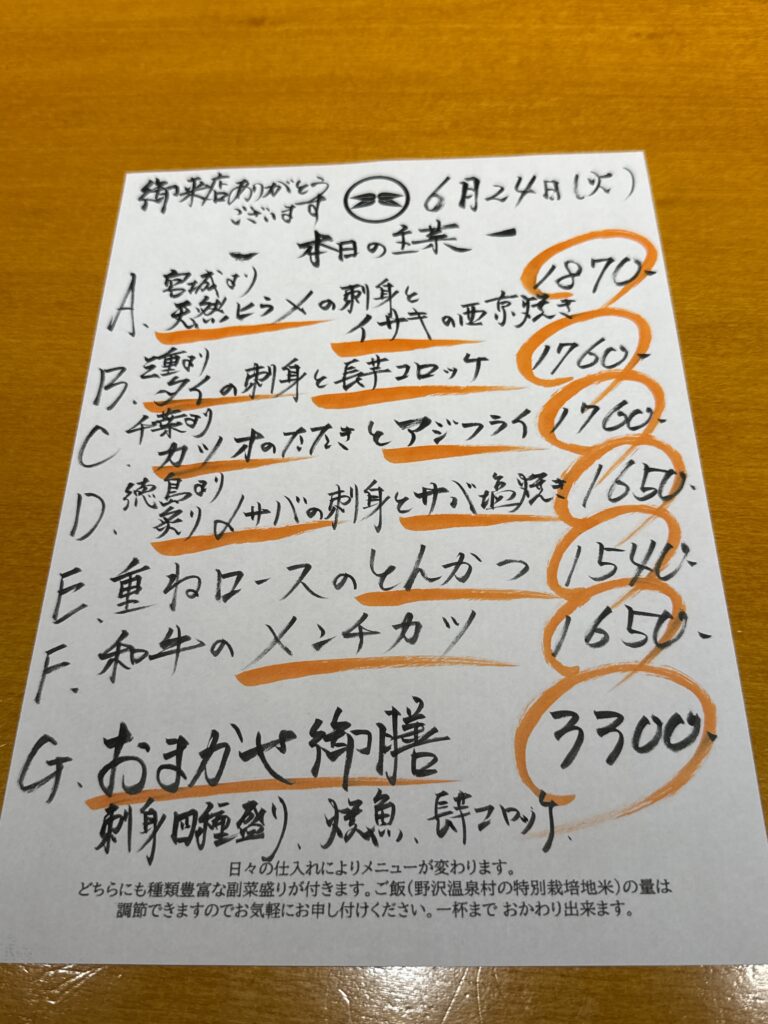 御来店ありがとう
ございます
6月24日(火)
ー 本日の主菜 ー
A. 宮城より
天然ヒラメの刺身と
イサキの西京焼き 1870-
B. 三重より
タイの刺身と長芋コロッケ 1760-
C. 千葉より
カツオのたたきとアジフライ 1760-
D. 徳島より
炙り〆サバの刺身とサバ塩焼き 1650-
E. 重ねロースのとんかつ 1540-
F. 和牛のメンチカツ 1650-
G. おまかせ御膳 3300-
刺身四種盛り、焼魚、長芋コロッケ、
日々の仕入れによりメニューが変わります。
どちらにも種類豊富な副菜盛りが付きます。ご飯(野沢温泉村の特別栽培地米)の量は
調節できますのでお気軽にお申し付けください。一杯まで おかわり出来ます。